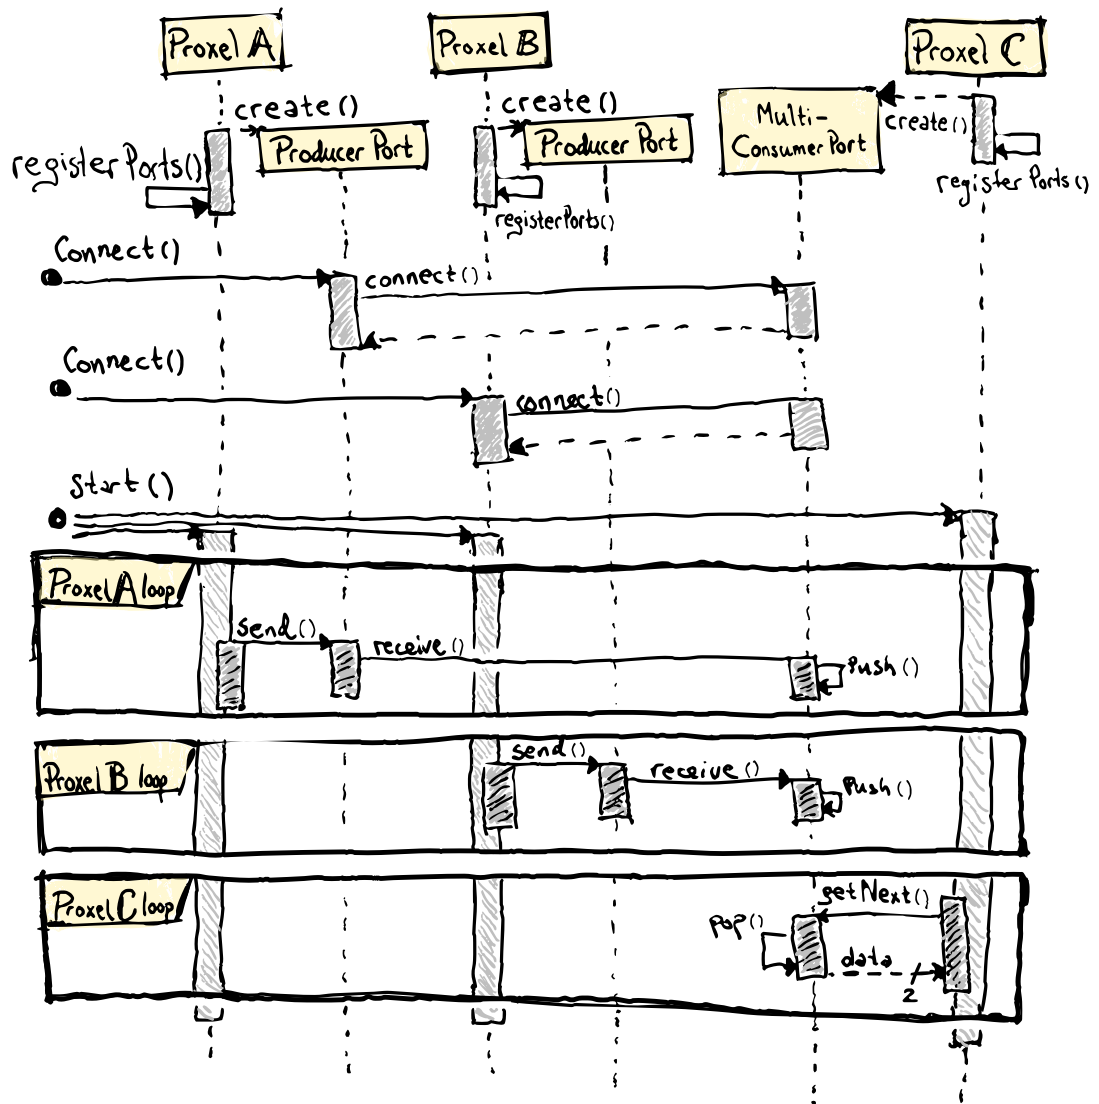 Proxel A
Proxel B
Proxel C
create()
create()
create()
Producer Port
Producer Port
Multi-
Consumer Port
register Ports()
registerPorts()
register Ports()
Connect()
connect()
Connect()
connect()
Start()
Proxel A loop
send()
receive()
Push()
Proxel B loop
send()
receive()
Push()
Proxel C loop
getNext()
pop()
data
2